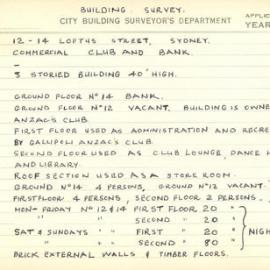 BUILDING SURVEY.
CITY BUILDING SURVEYOR'S DEPARTMENT
APPLIC
YEAR
12-14 LOFTUS STREET, SYDNEY.
COMMERCIAL CLUB AND BANK.
3 STORIED BUILDING 40' HIGH.
GROUND FLOOR Nº14 BANK.
GROUND FLOOR Nº12 VACANT. BUILDING IS OWNE
ANZAC'S CLUB.
FIRST FLOOR USED AS ADMINISTRATION AND RECRE
BY GALLIPOLI ANZAC'S CLUB.
SECOND FLOOR USED AS CLUB LOUNGE, DANCE H
AND LIBRARY.
ROOF SECTION USED AS A STORE ROOM.
GROUND Nº14 4 PERSONS, GROUND Nº12 VACANT.
FIRST FLOOR 4 PERSONS, SECOND FLOOR 2 PERSONS.
MON-FRIDAY Nº12 & 14 FIRST FLOOR 20 "
" " SECOND " 20 "
SAT & SUNDAYS " FIRST " 20 "
" " SECOND " 80 "
NIGH
BRICK EXTERNAL WALLS & TIMBER FLOORS.